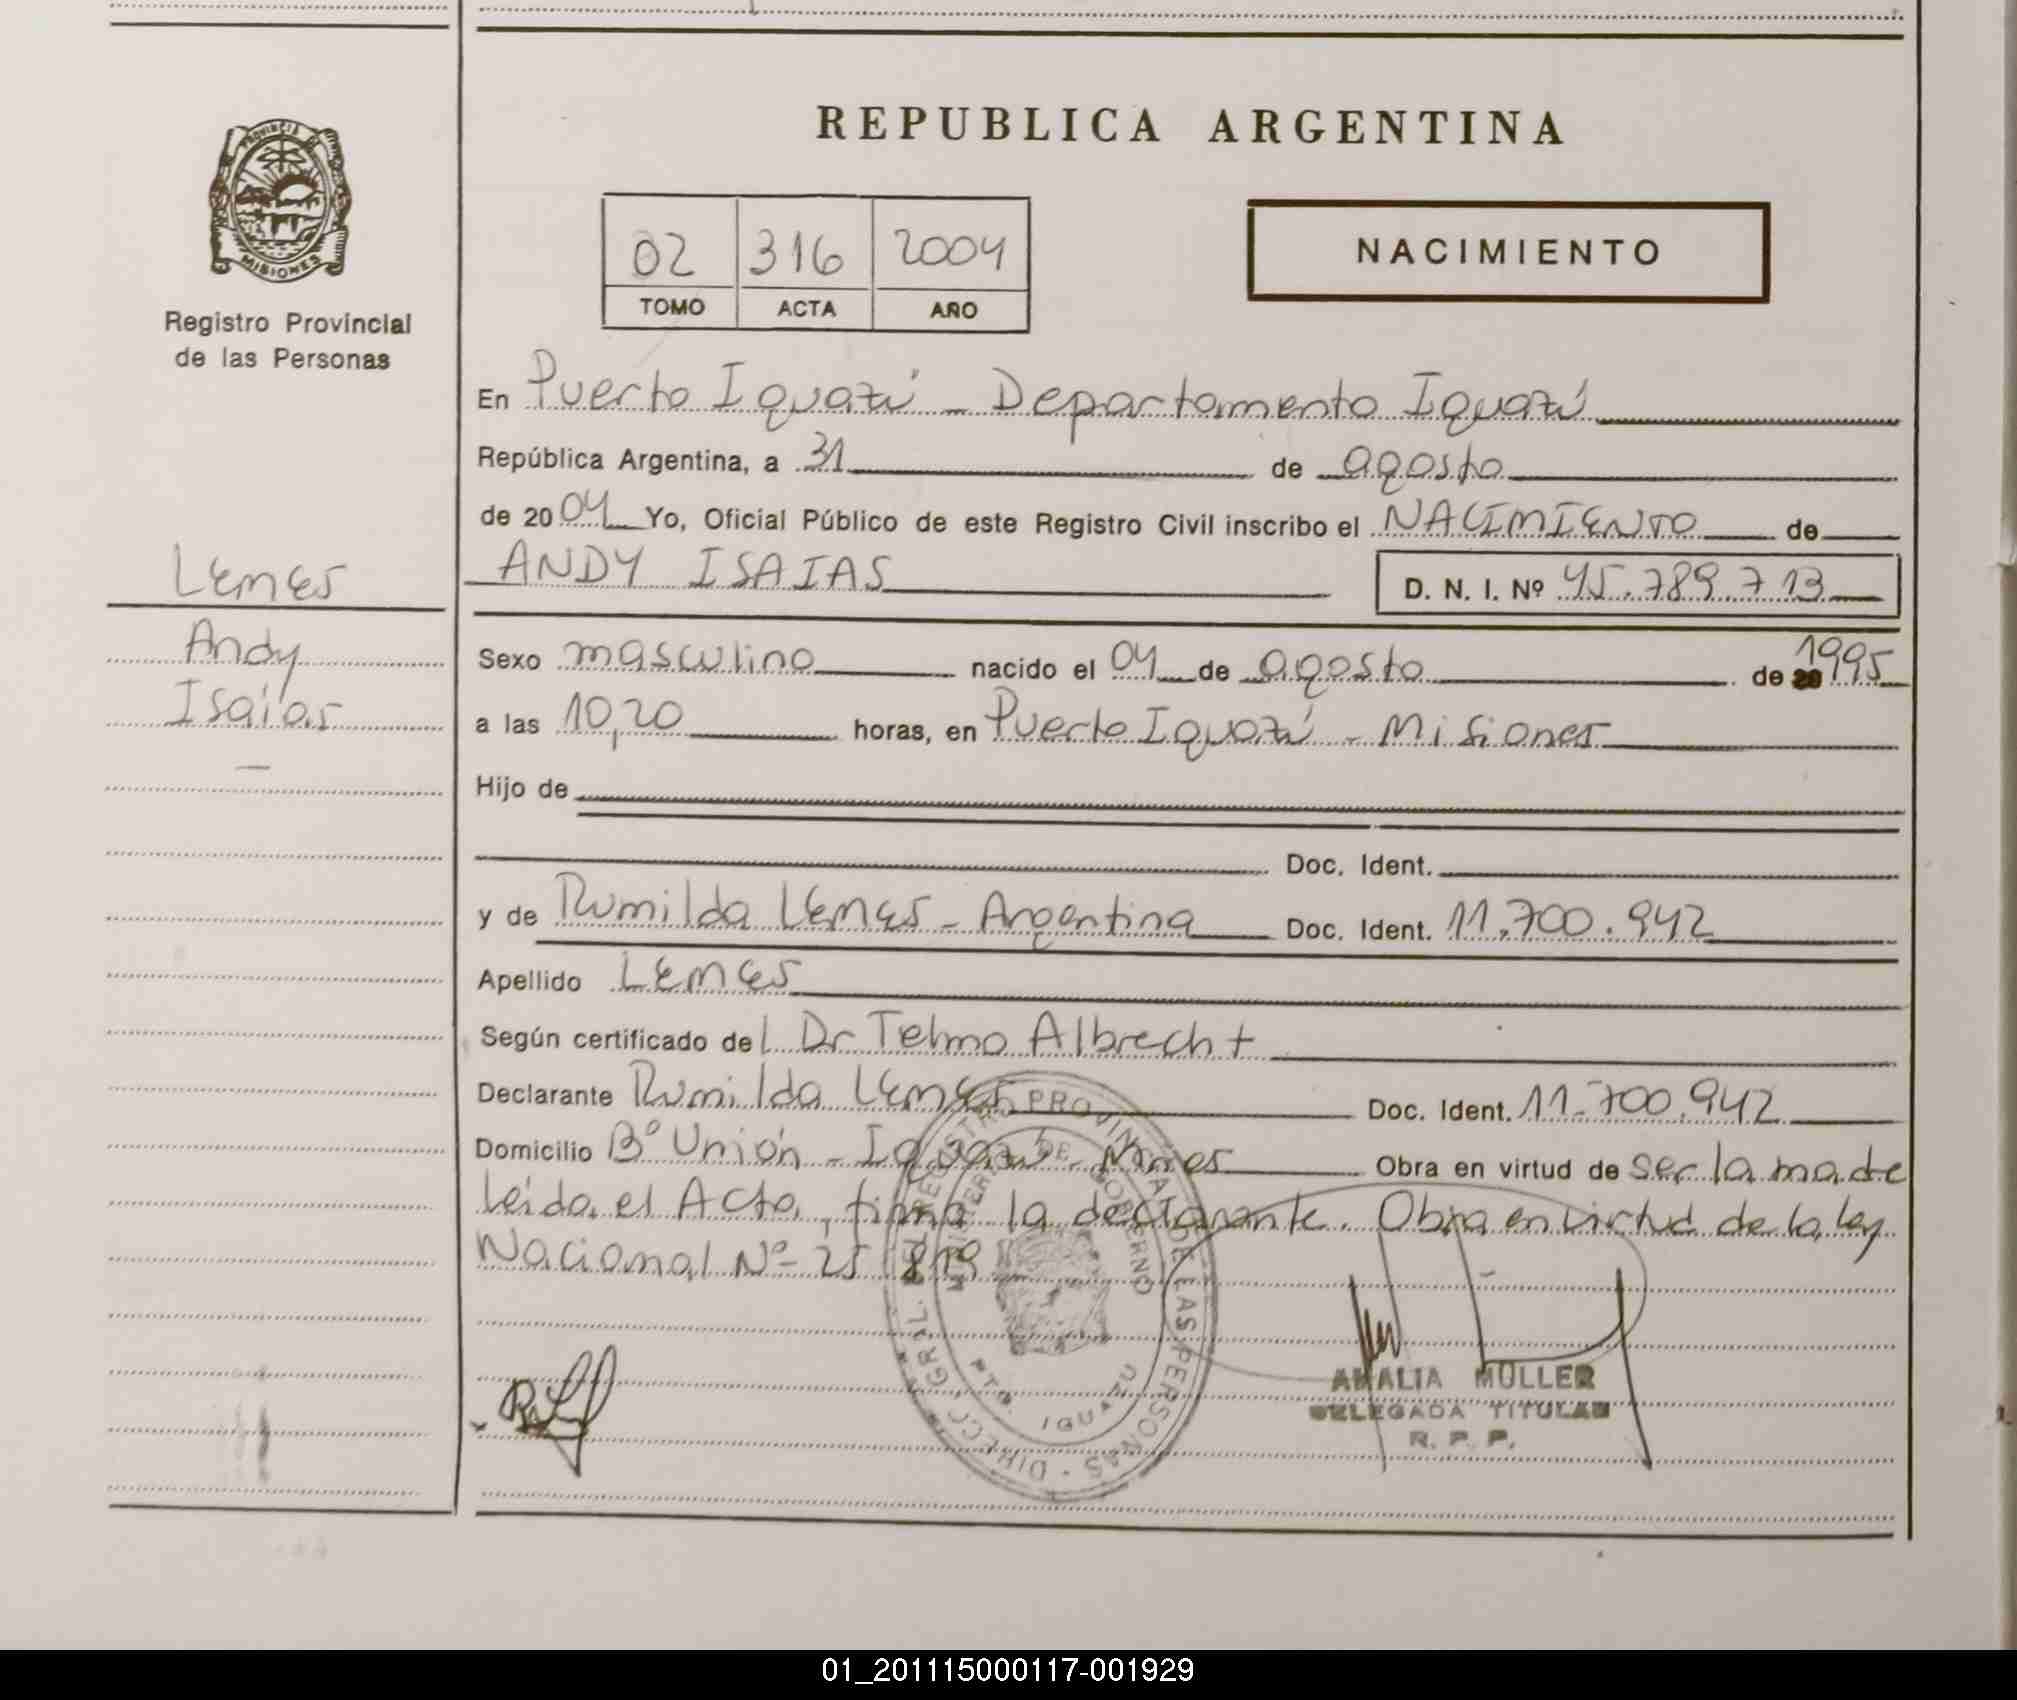 PROVINCIA DE
MISIONES
Registro Provincial
de las Personas
Lemes
Andy
Isaías
REPUBLICA ARGENTINA
02 316 2004
TOMO ACTA AÑO
NACIMIENTO
En Puerto Iguazú - Departamento Iguazú
República Argentina, a 31 de agosto
de 2004 Yo, Oficial Público de este Registro Civil inscribo el NACIMIENTO de
ANDY ISAIAS D. N. I. Nº 45.789.713
Sexo masculino nacido el 04 de agosto de 20 1995
a las 10,20 horas, en Puerto Iguazú - Misiones
Hijo de
Doc. Ident.
y de Rumilda Lemes - Argentina Doc. Ident. 11.700.942
Apellido Lemes
Según certificado del Dr Telmo Albrecht
Declarante Rumilda Lemes Doc. Ident. 11.700.942
Domicilio Bº Unión - Iguazú - Mnes Obra en virtud de ser la madre
leida el Acta, firma la declarante. Obra en virtud de la ley
Nacional Nº 25 819
DIRECC. GRAL. DEL REGISTRO PROVINCIAL DE LAS PERSONAS
MINISTERIO DE GOBERNO
PTO. IGUAZU
AMALIA MULLER
DELEGADA TITULAR
R. P. P.
01_201115000117-001929